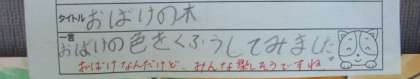 タイトル おばけの木
一言 おばけの色をくふうしてみました
おばけなんだけど、みんな楽しそうですね